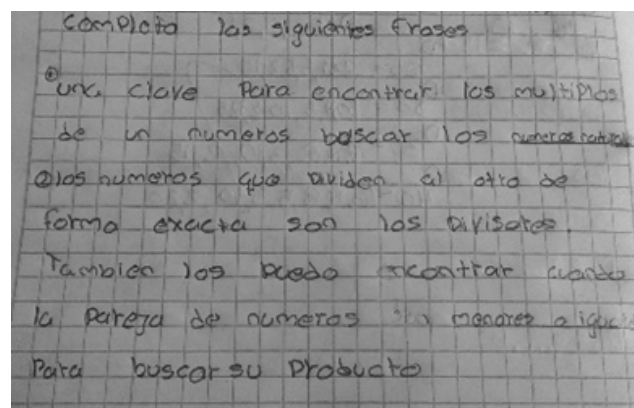 Completo las siguientes frases
① una clave Para encontrar los multiplos
de un numeros buscar los numeros
② los numeros que dividen al otro de
forma exacta son los divisores.
Tambien los puedo encontrar cuando
la pareja de numeros menores o igual
Para buscar su Producto